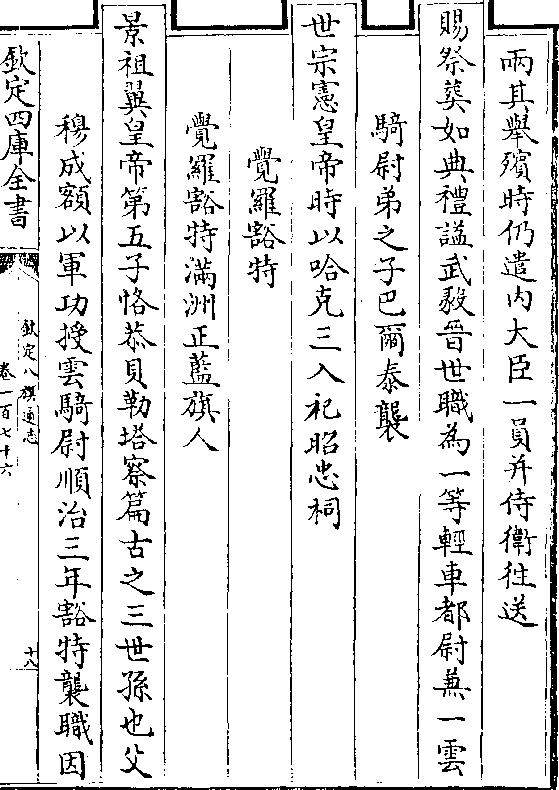 兩其舉殯時仍遣内大臣一員并侍衛徃送
賜祭葬如典禮謚武毅晉世職為一等輕車都尉兼一雲
騎尉弟之子巴爾泰襲
世宗憲皇帝時以哈克三入祀昭忠祠
覺羅豁特
覺羅豁特滿洲正藍旗人
景祖翼皇帝第五子恪恭貝勒塔察篇古之三世孫也父
穆成額以軍功授雲騎尉順治三年豁特襲職因
欽定四庫全書
欽定八旗通志
卷一百七十六
十八